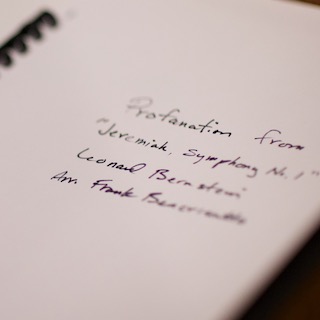 Profanation from
"Jeremiah, Symphony No. 1"
Leonard Bernstein
Arr. Frank